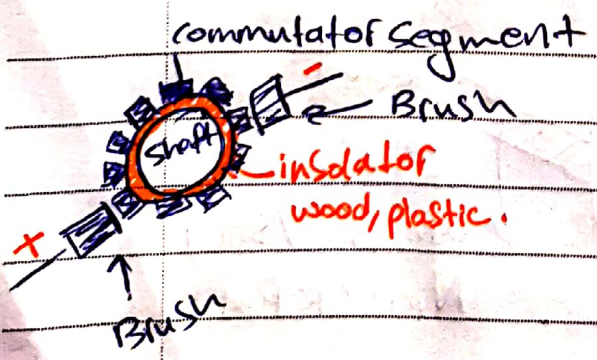 commutator segment
-
Brush
shaft
insolator
wood, plastic.
+
Brush